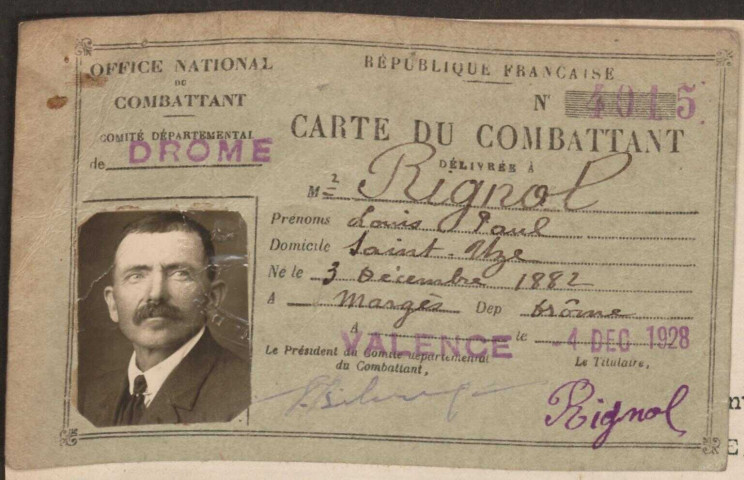 OFFICE NATIONAL
DU
COMBATTANT
COMITÉ DÉPARTEMENTAL
de DROME
RÉPUBLIQUE FRANÇAISE
N° 4915
CARTE DU COMBATTANT
DÉLIVRÉE À
Mr Rignol
Prénoms Louis Paul
Domicile Saint-Uze
Né le 3 Décembre 1882
A Margès Dep drôme
A VALENCE le -4 DEC 1928
Le Président du Comité départemental
du Combattant,
Le Titulaire,
Rignol